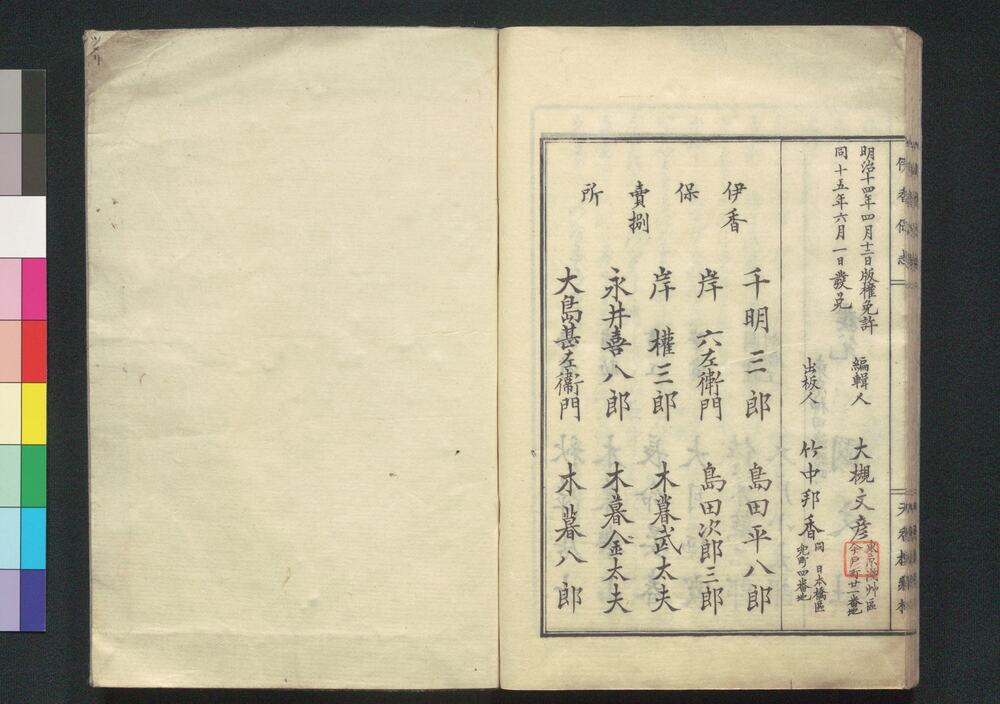 明治十四年四月十二日版權免許
同十五年六月一日發兌
編輯人 大槻文彦
東京淺艸區
今戸町廿一番地
出板人 竹中邦香
同 日本橋區
兜町四番地
伊香
保
賣捌
所
千明三郎 島田平八郎
岸六左衛門 島田次郎三郎
岸權三郎 木暮武太夫
永井喜八郎 木暮金太夫
大島甚左衛門 木暮八郎